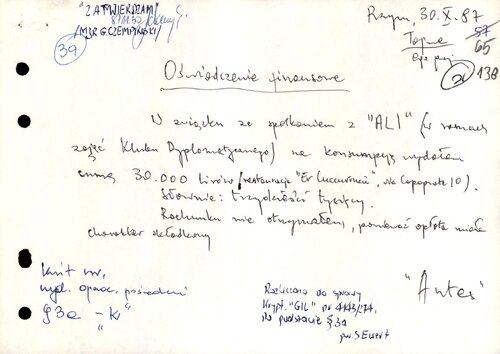 "ZATWIERDZAM"
/MJR G. CZEMPIŃSKI/
39
Rzym, 30.X.87
Tajne
egz poj
57
65
138
Oświadczenie finansowe
W związku ze spotkaniem z "ALI" (w ramach
zajęć Klubu Dyplomatycznego) na konsumpcję wydałem
sumę 30.000 lirów (restauracja "Er Cuccurucù", via Capoprati 10).
Słownie: trzydzieści tysięcy.
Rachunku nie otrzymałem, ponieważ opłata miała
charakter składkowy
"Antes"
Kwit nr,
wyd. oprac. pośredni
§ 3a - K"
Rozliczono do sprawy
krypt. "GIL" nr
na podstawie § 3a